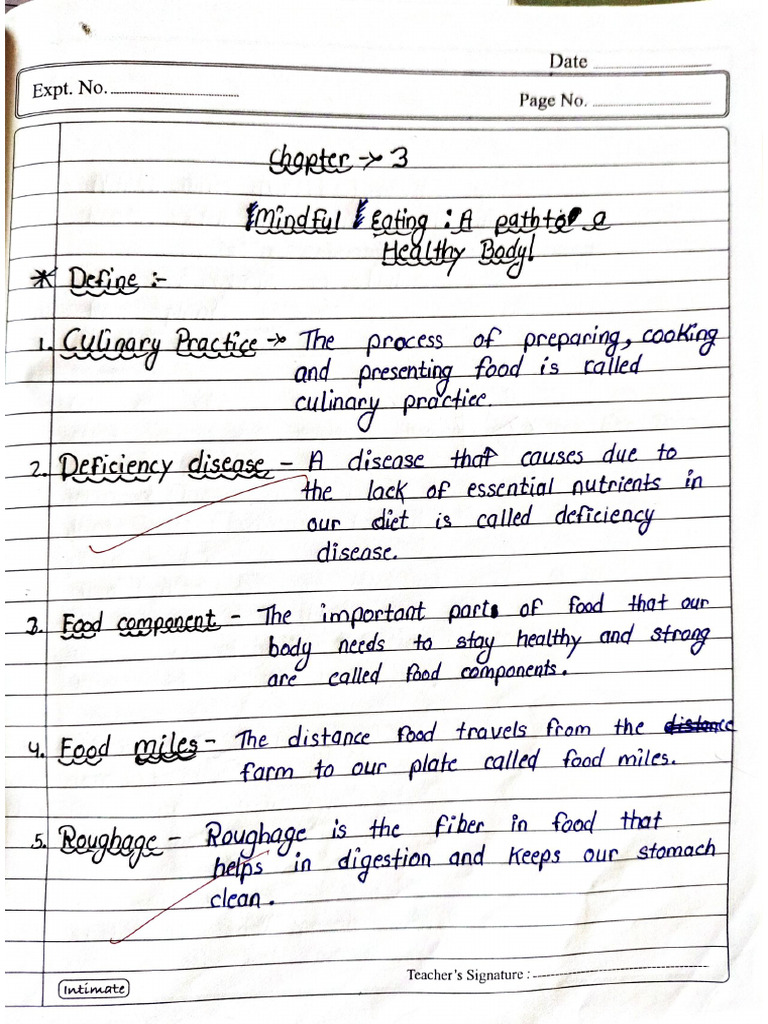 Date
Expt. No.
Page No.
Chapter → 3
Mindful Eating : A path to a
Healthy Body!
* Define :-
1. Culinary Practice → The process of preparing, cooking
and presenting food is called
culinary practice.
2. Deficiency disease - A disease that causes due to
the lack of essential nutrients in
our diet is called deficiency
disease.
3. Food component - The important parts of food that our
body needs to stay healthy and strong
are called food components.
4. Food miles - The distance food travels from the distance
farm to our plate called food miles.
5. Roughage - Roughage is the fiber in food that
helps in digestion and keeps our stomach
clean.
Teacher's Signature :
Intimate